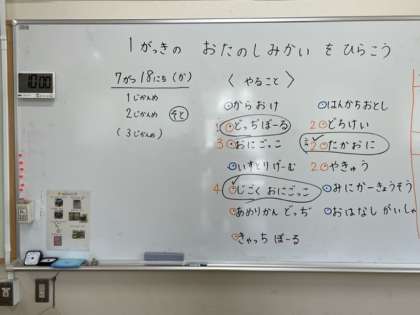 1がっきの おたのしみかい をひらこう
10:00
7がつ18にち(か)
1じかんめ
2じかんめ そと
(3じかんめ)
〈 やること 〉
からおけ
どっぢぼーる
3 おにごっこ
いすとりげーむ
4 じごく おにごっこ
あめりかん どっぢ
きゃっち ぼーる
はんかちおとし
2 どろけい
2 たかおに
2 やきゅう
みにかーきょうそう
おはなし がいしゃ